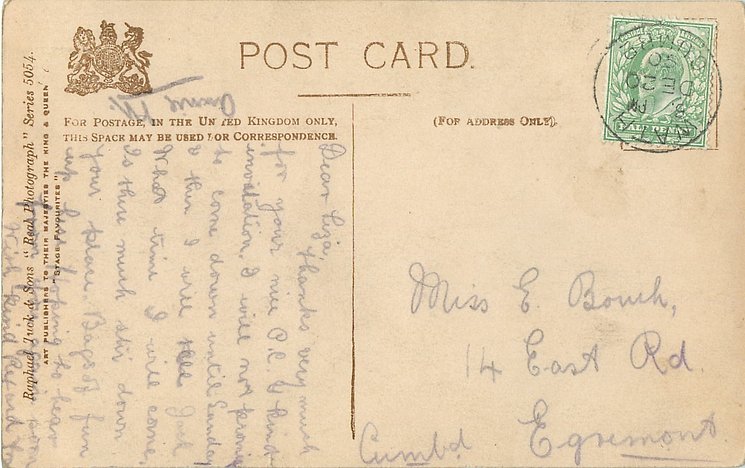 POST CARD.
FOR POSTAGE, IN THE UNITED KINGDOM ONLY,
THIS SPACE MAY BE USED FOR CORRESPONDENCE.
(FOR ADDRESS ONLY).
Raphael Tuck & Sons "Real Photograph" Series 5054.
ART PUBLISHERS TO THEIR MAJESTIES THE KING & QUEEN
"STAGE FAVOURITES"
POSTAGE
HALFPENNY
Dear Liza,
Thanks very much
for your nice P.C. & kind
invitation. I will not promise
to come down until Sunday
& then I will tell Jack
What time I will come.
Is there much ski down
your place. Bags of fun
up here. Hoping to hear
soon
With kind regards from
Annie
Miss E. Bouch,
14 East Rd.
Egremont.
Cumbd